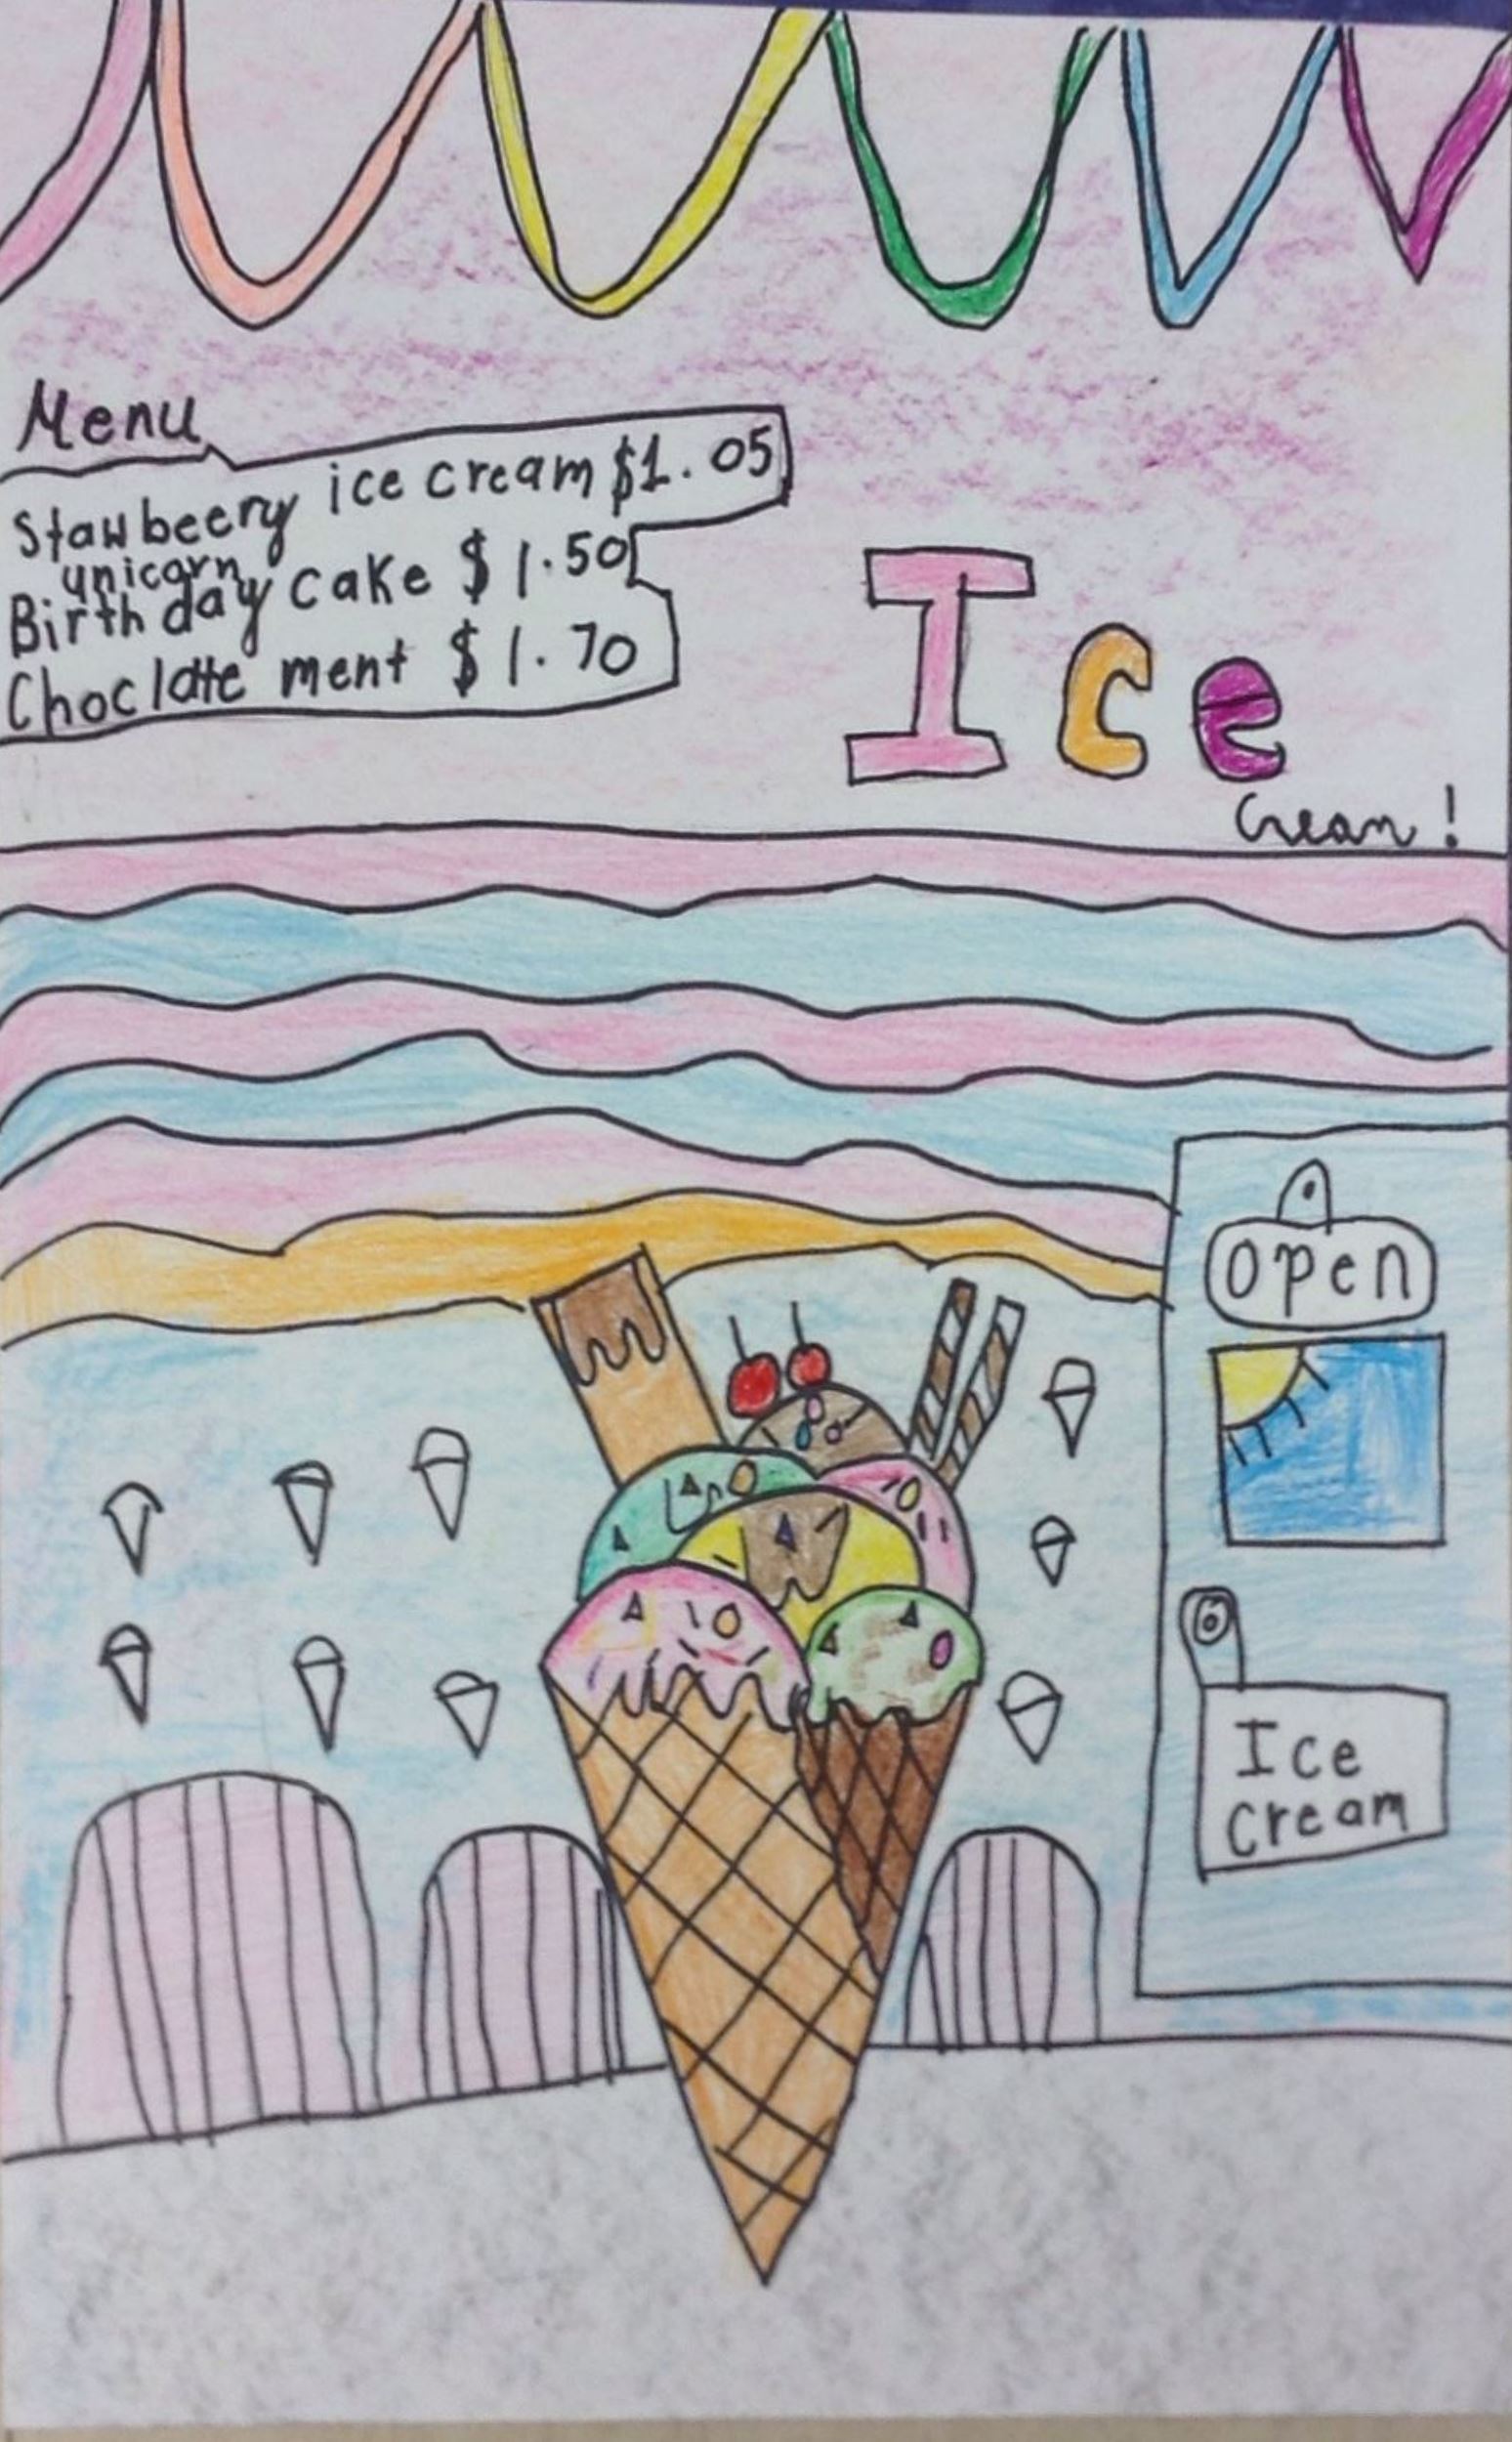 Menu
Stawbeery ice cream $1.05
unicorn
Birthday cake $1.50
Choclate ment $1.70
Ice
Cream!
open
Ice
cream